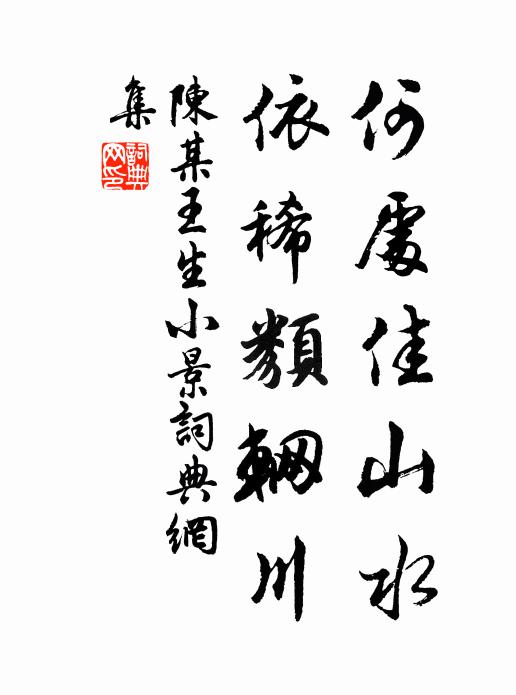 何處佳山水
依稀類輞川
陳某王生小景詞典網
集
詞典网印